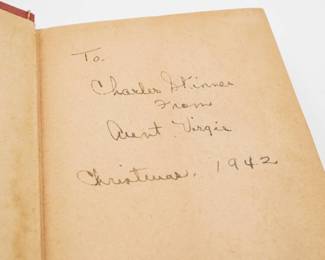 To.
Charles Skinner
From
Aunt Virgie
Christmas. 1942